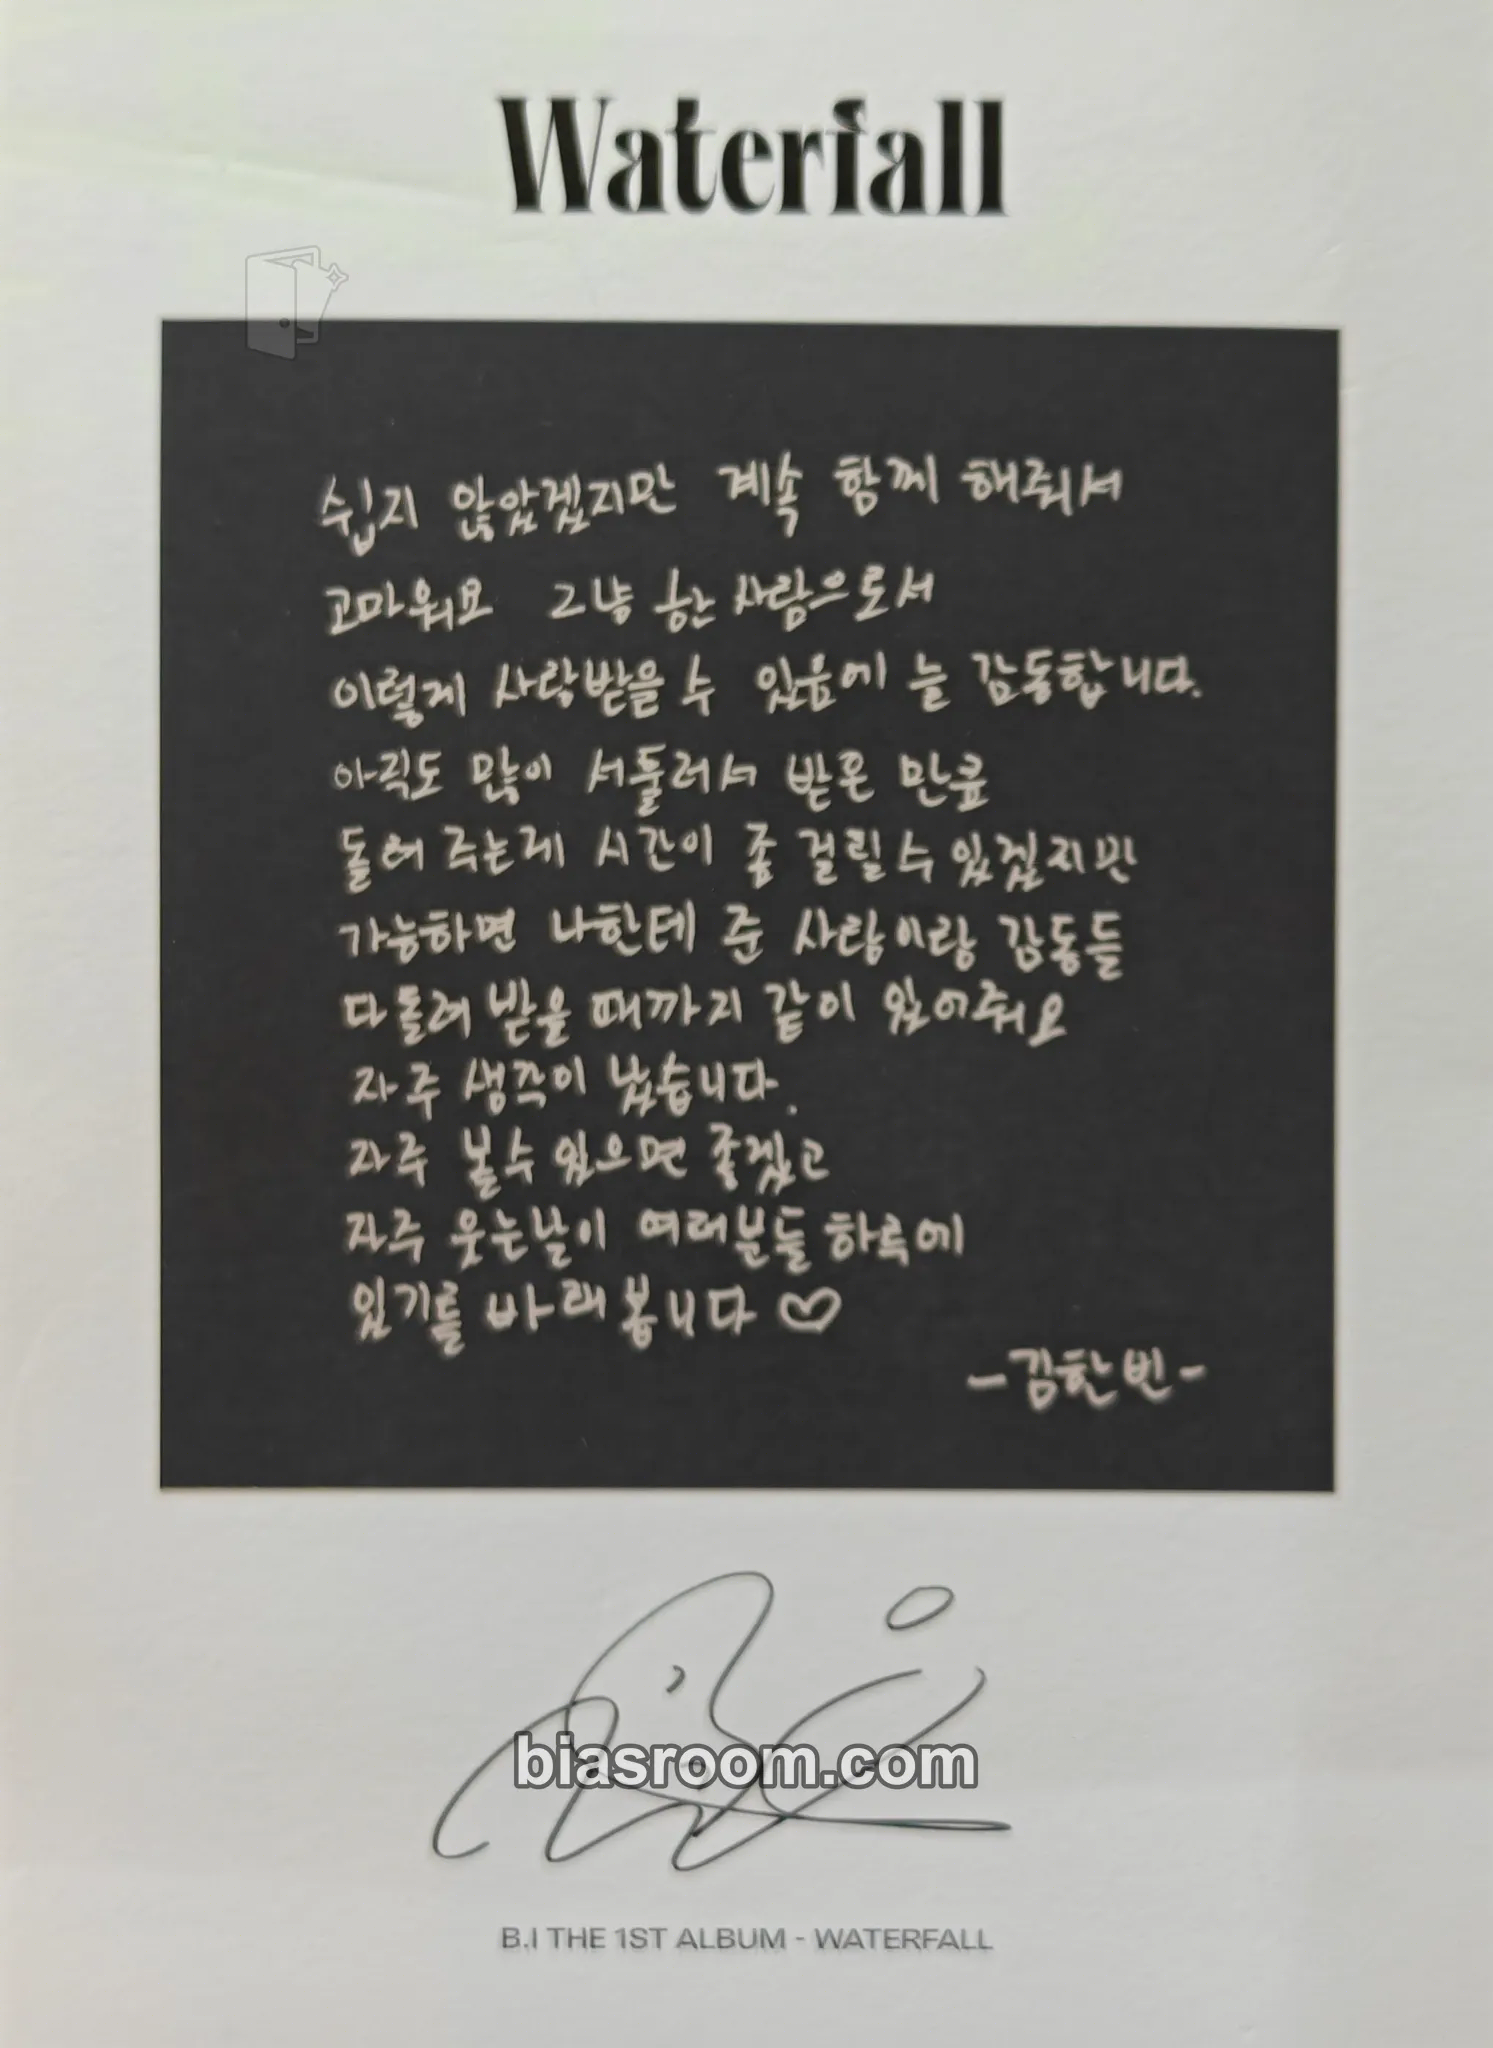 Waterfall
쉽지 않았겠지만 계속 함께 해줘서
고마워요 그냥 한 사람으로서
이렇게 사랑받을 수 있음에 늘 감동합니다.
아직도 많이 서툴러서 받은 만큼
돌려 주는데 시간이 좀 걸릴 수 있겠지만
가능하면 나한테 준 사랑이랑 감동들
다 돌려 받을 때까지 같이 있어줘요
자주 생각이 났습니다.
자주 볼 수 있으면 좋겠고
자주 웃는 날이 여러분들 하루에
있기를 바래 봅니다 ♡
-김한빈-
biasroom.com
B.I THE 1ST ALBUM - WATERFALL